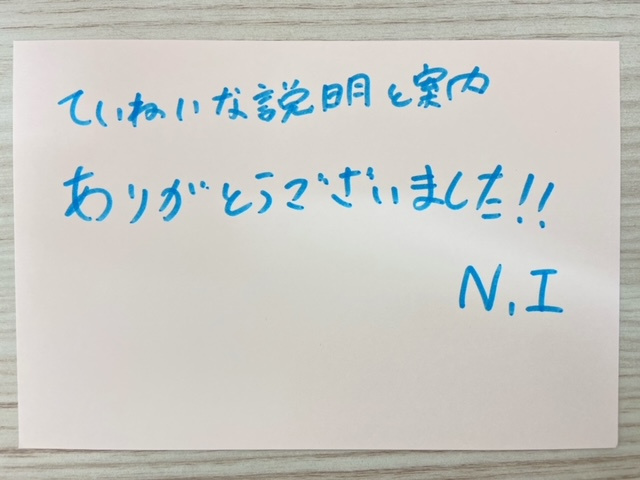 ていねいな説明と案内
ありがとうございました!!
N,I